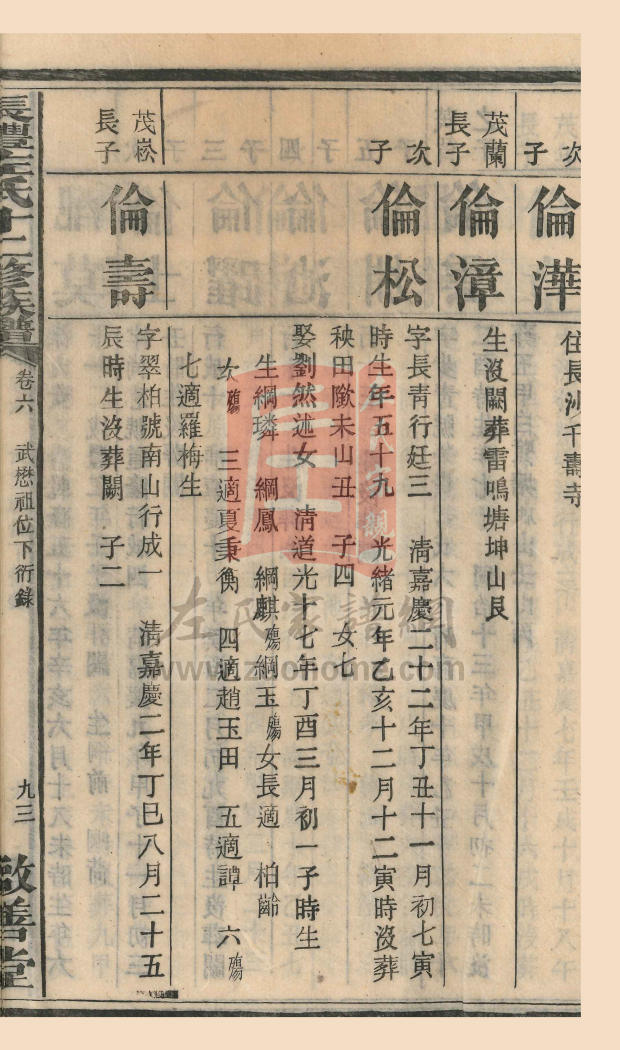 次
子
倫澕
住長沙千壽寺
茂蘭
長子
倫漳
生沒闕葬雷鳴塘坤山艮
次
子
倫松
字長青行廷三 清嘉慶二十二年丁丑十一月初七寅
時生年五十九 光緒元年乙亥十二月十二寅時沒葬
秧田墘未山丑 子四 女七
娶劉然述女 清道光十七年丁酉三月初一子時生
生綱璘 綱鳳 綱麒殤綱玉殤女長適 柏齡
次殤 三適夏秉衡 四適趙玉田 五適譚 六殤
七適羅梅生
茂崧
長子
倫壽
字翠柏號南山行成一 清嘉慶二年丁巳八月二十五
辰時生沒葬闕 子二
長澧左氏十二修族譜
卷六 武懋祖位下衍錄
九三
敬善堂
左氏家譜網
www.zuohome.com